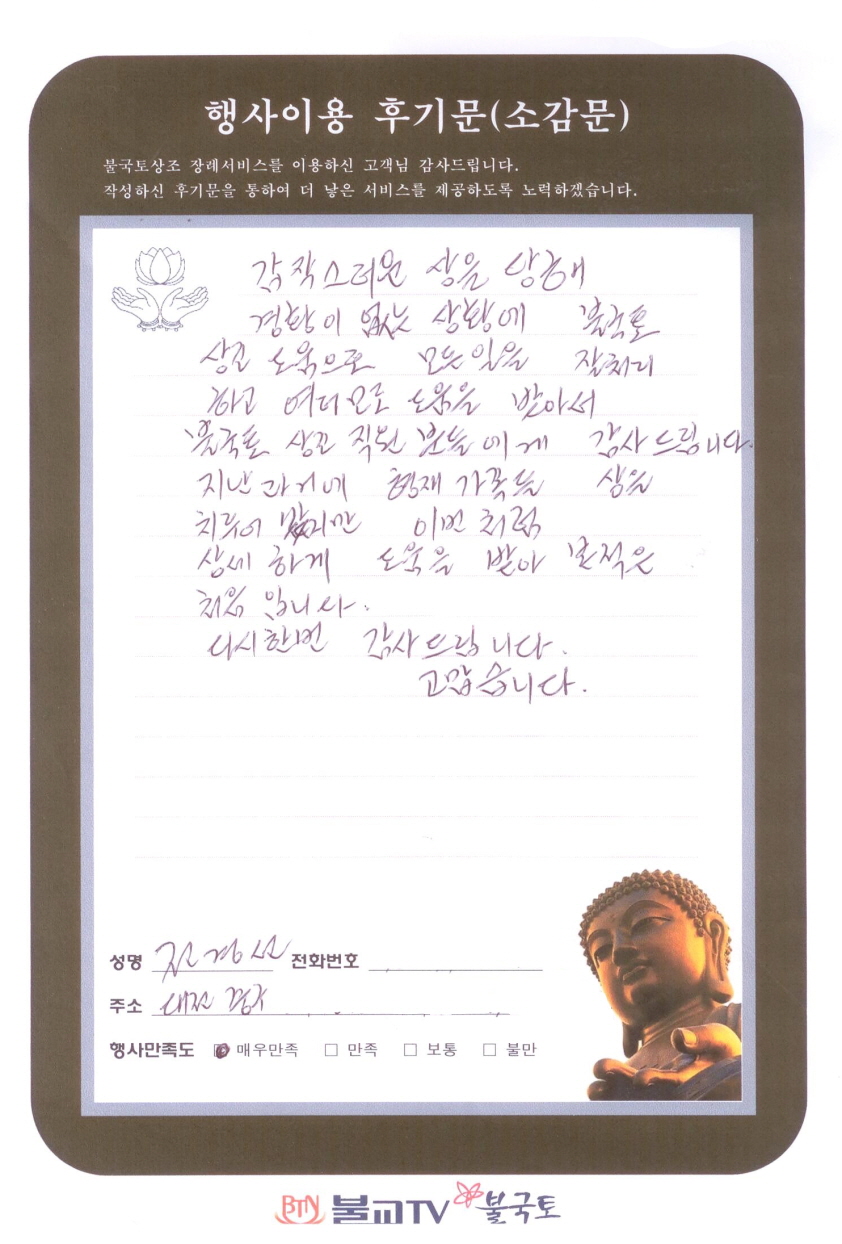 행사이용 후기문(소감문)
불국토상조 장례서비스를 이용하신 고객님 감사드립니다.
작성하신 후기문을 통하여 더 낳은 서비스를 제공하도록 노력하겠습니다.
갑작스러원 상을 당해
경황이 없는 상황에 불국토
상조 도움으로 모든일을 잘처리
하고 여러모로 도움을 받아서
불국토 상조 직원 분들에게 감사드립니다.
지난 과거에 형제 가족들 상을
치루어 봤지만 이번처럼
상세하게 도움을 받아 본적은
처음 입니다.
다시한번 감사드립니다.
고맙습니다.
성명 전경선 전화번호
주소 대전
행사만족도 매우만족 □ 만족 □ 보통 □ 불만
BTN 불교TV 불국토